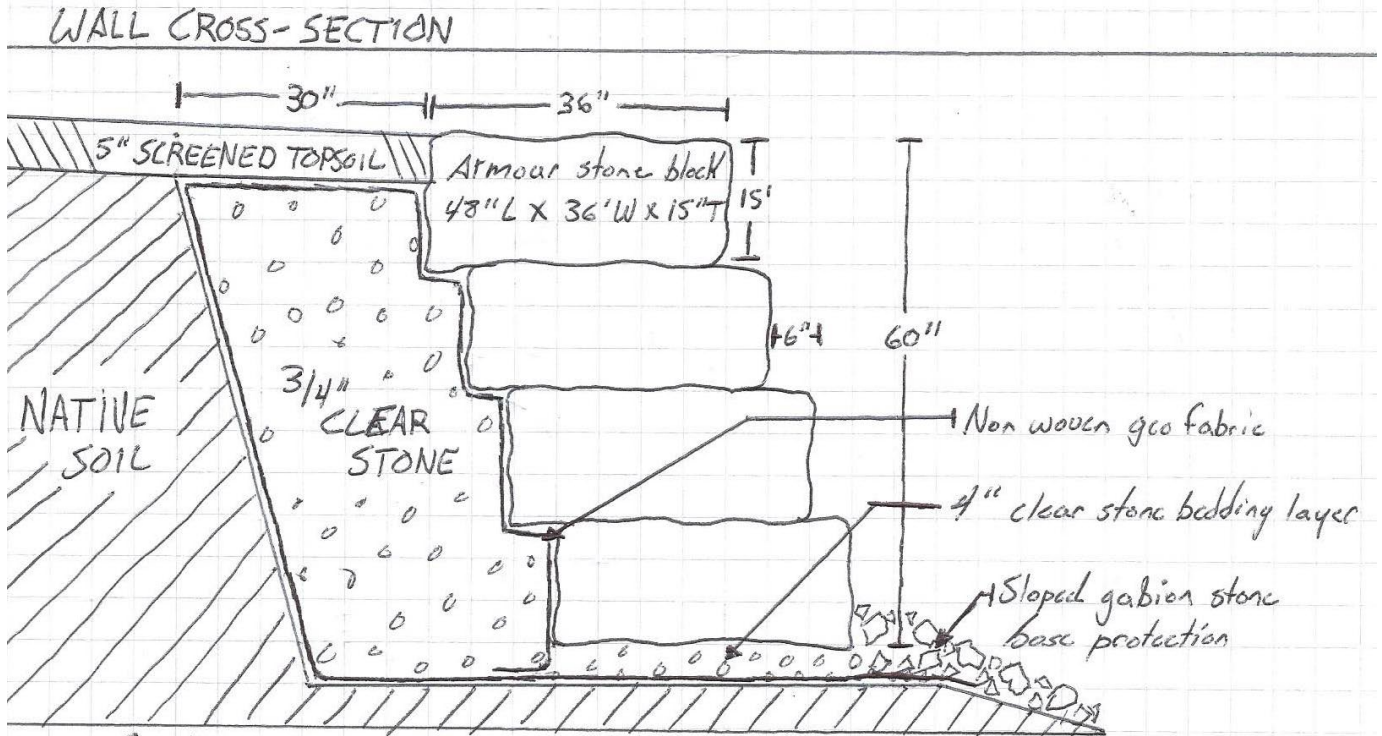 WALL CROSS-SECTION
30"
36"
5" SCREENED TOPSOIL
Armour stone block
48"L X 36'W x 15"T
15'
6"
60"
NATIVE
SOIL
3/4"
CLEAR
STONE
Non woven geo fabric
4" clear stone bedding layer
Sloped gabion stone
base protection